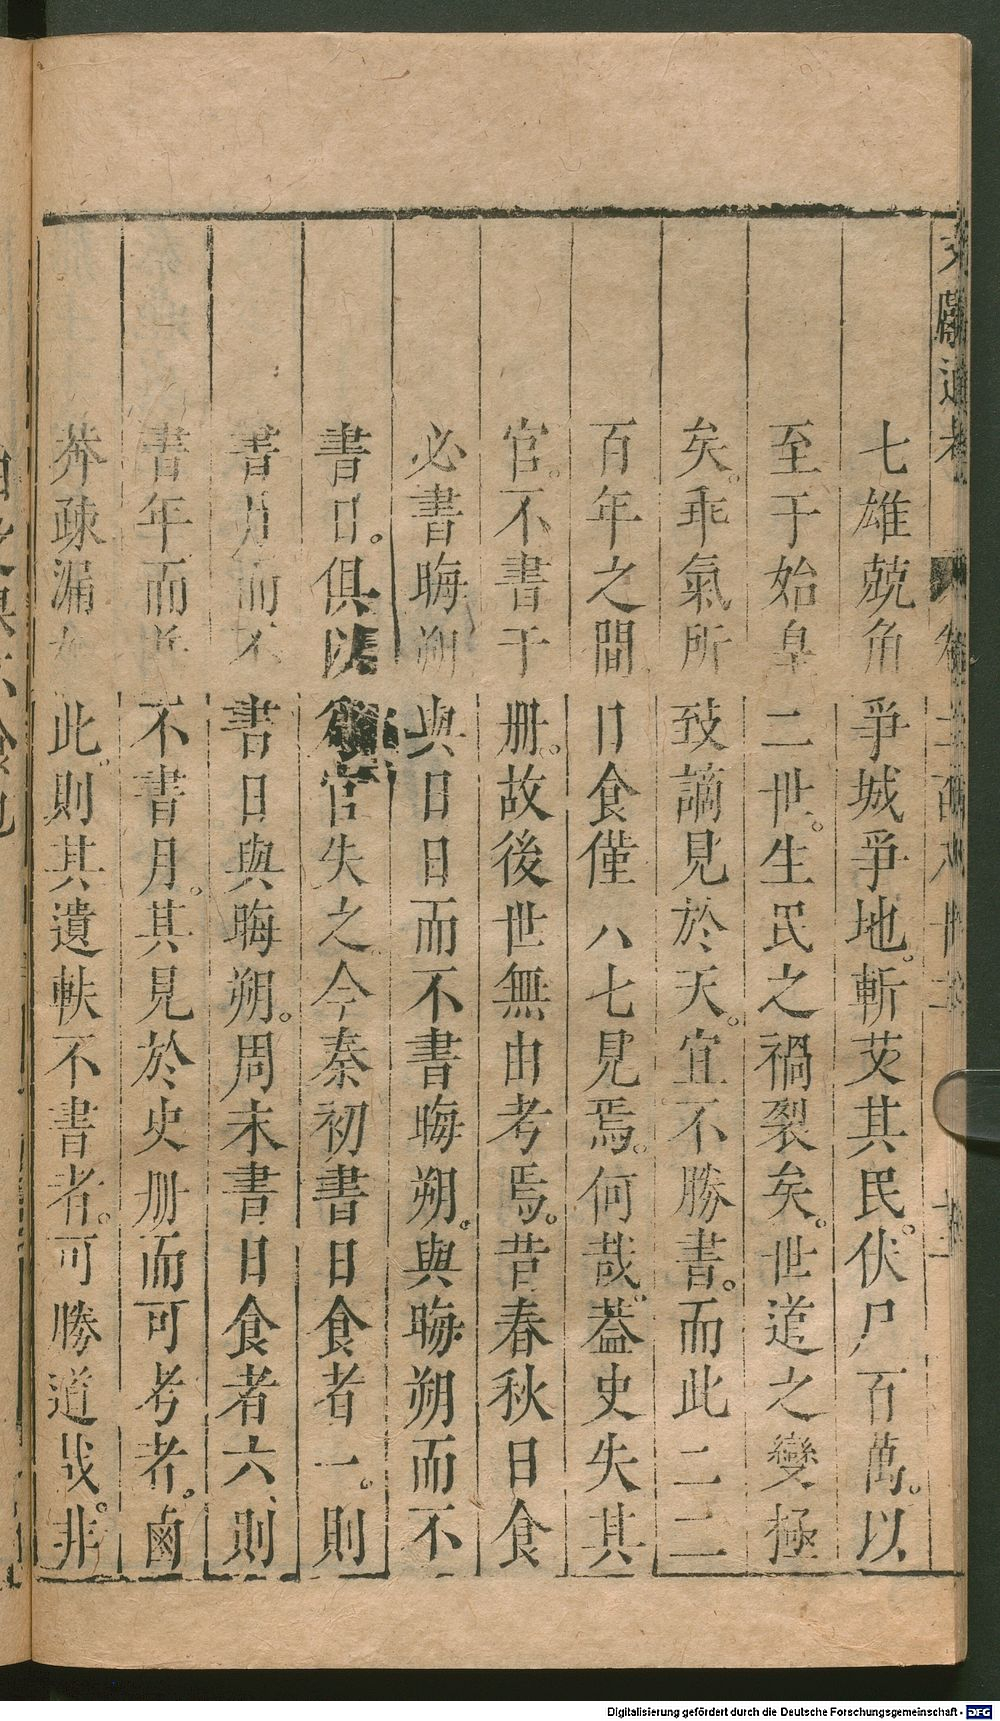 七雄兢角爭城爭地。斬艾其民。伏尸百萬。以
至于始皇二世。生民之禍裂矣。世道之變極
矣。乖氣所致謫見於天。宜不勝書。而此二二
百年之間日食僅八七見焉。何哉。葢史失其
官。不書于册。故後世無由考焉。昔春秋日食
必書晦朔與日日而不書晦朔。與晦朔而不
書日。俱以爲官失之今秦初書日食者一。則
書月而不書日與晦朔。周末書日食者六則
書年而並不書月。其見於史册而可考者。鹵
莽疎漏如此。則其遺軼不書者。可勝道哉。非
文獻通考 卷二百八十二 十二
Digitalisierung gefördert durch die Deutsche Forschungsgemeinschaft - DFG